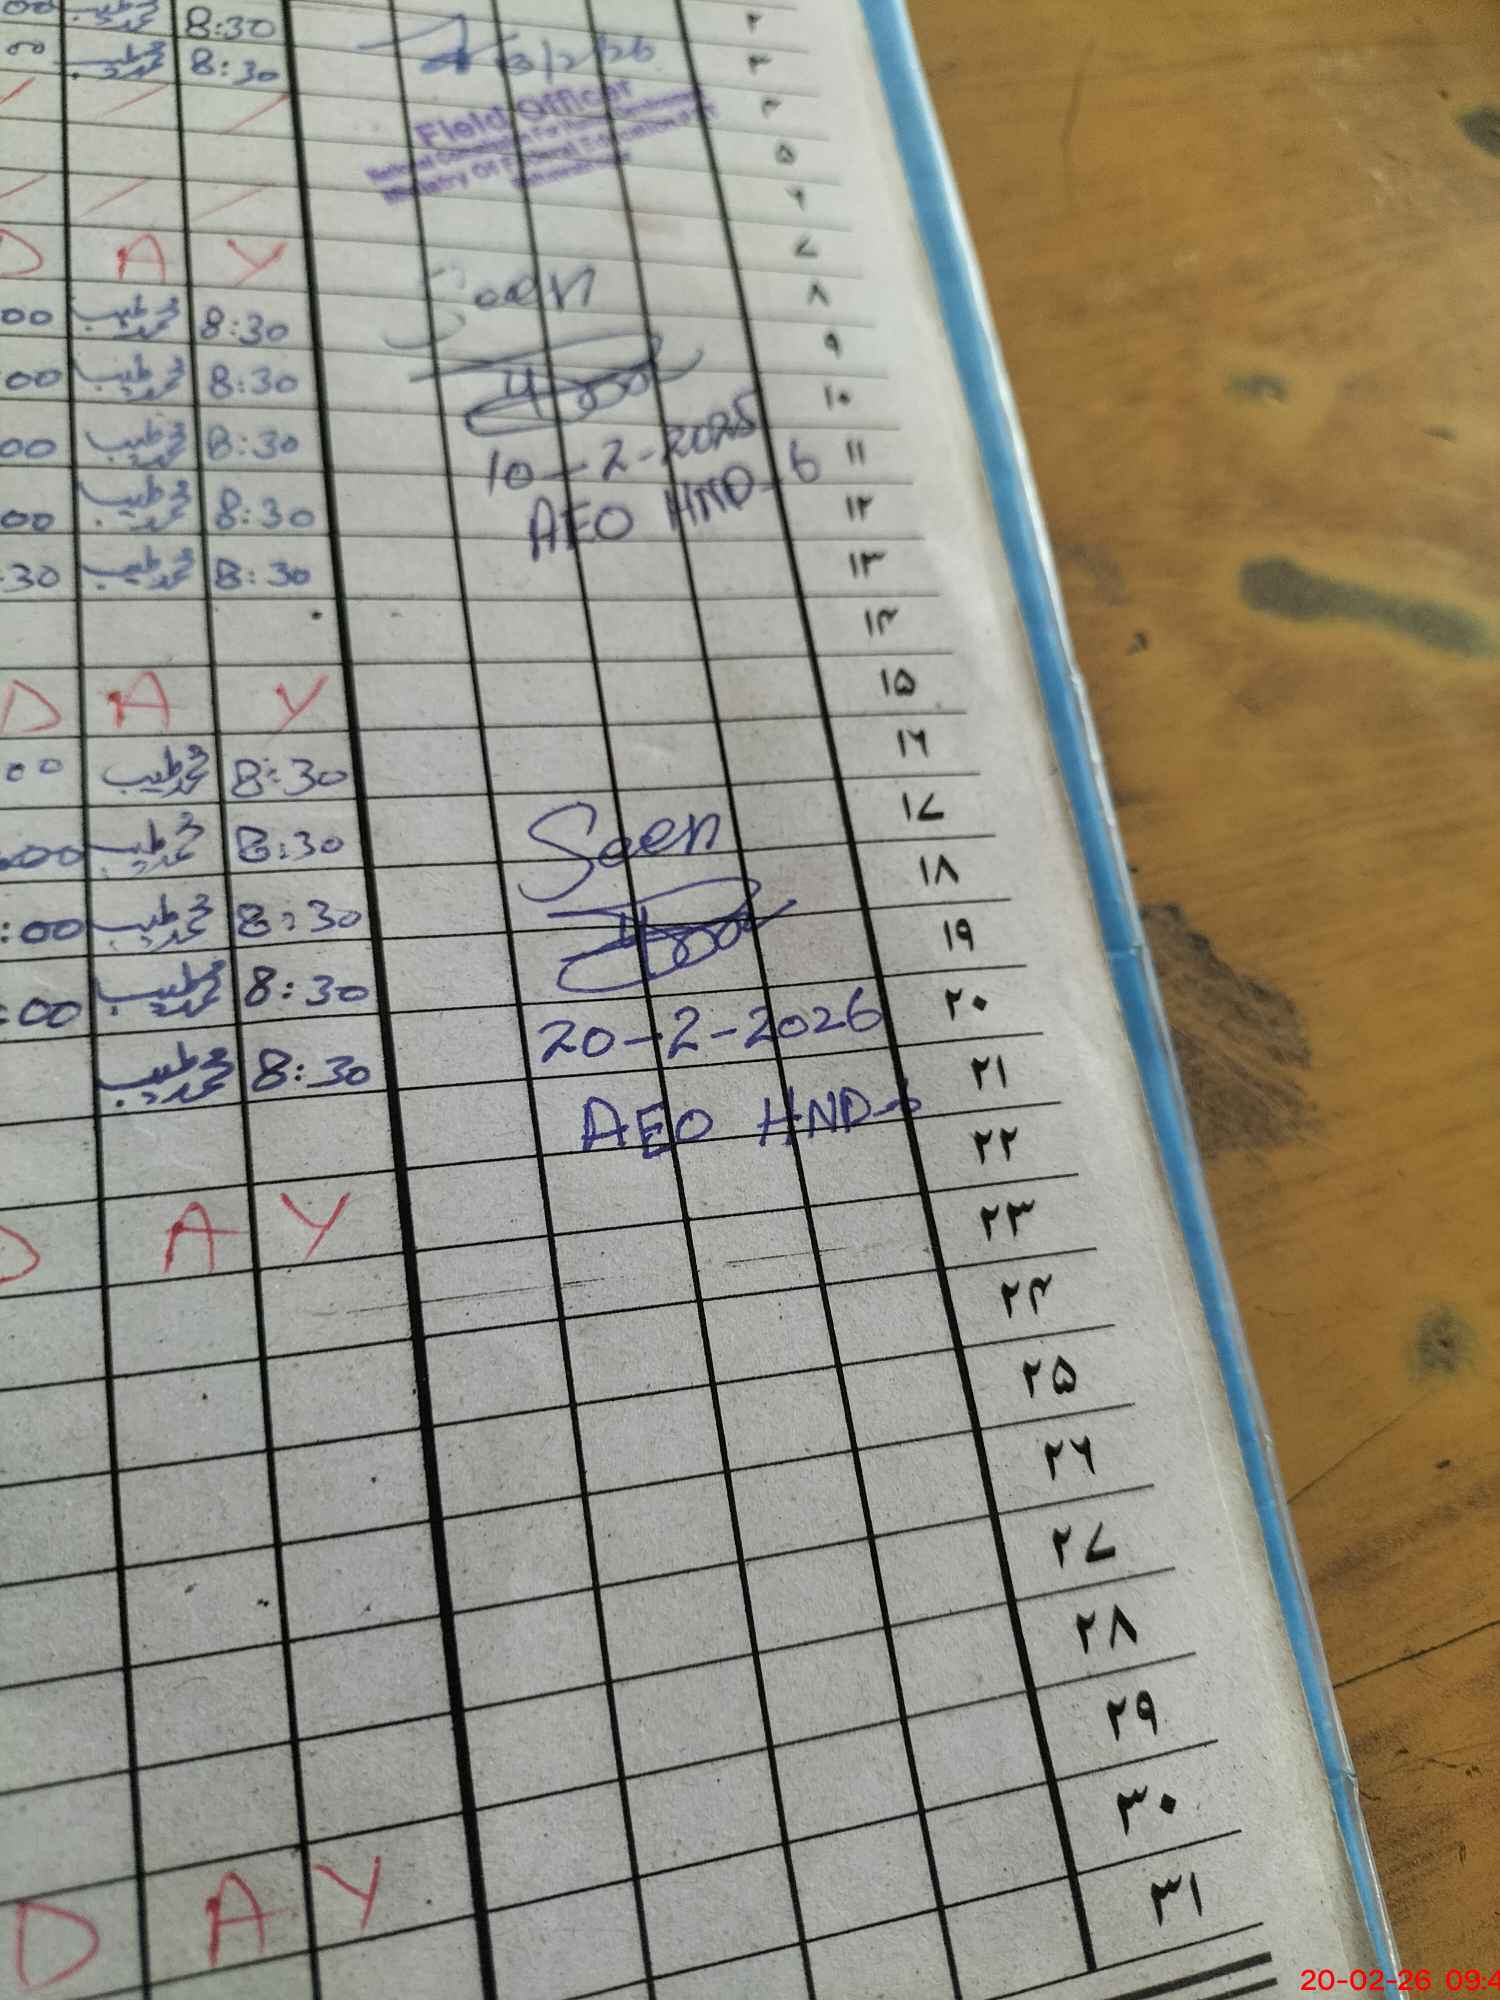 00 محمد طیب 8:30 ۲
00 محمد طیب 8:30 3/2/26 ۳
Field Officer ۴
National Commission For Human Development
Ministry Of Federal Education ۵
۶
D A Y ۷
Seen
00 محمد طیب 8:30 ۸
00 محمد طیب 8:30 ۹
00 محمد طیب 8:30 10-2-2025 ۱۰
AEO HND-6 ۱۱
00 محمد طیب 8:30 ۱۲
30 محمد طیب 8:30 ۱۳
۱۴
D A Y ۱۵
00 محمد طیب 8:30 ۱۶
:00 محمد طیب 8:30 Seen ۱۷
:00 محمد طیب 8:30 ۱۸
:00 محمد طیب 8:30 ۱۹
محمد طیب 8:30 20-2-2026 ۲۰
AEO HND-6 ۲۱
D A Y ۲۲
۲۳
۲۴
۲۵
۲۶
۲۷
۲۸
۲۹
۳۰
D A Y ۳۱
20-02-26 09:4